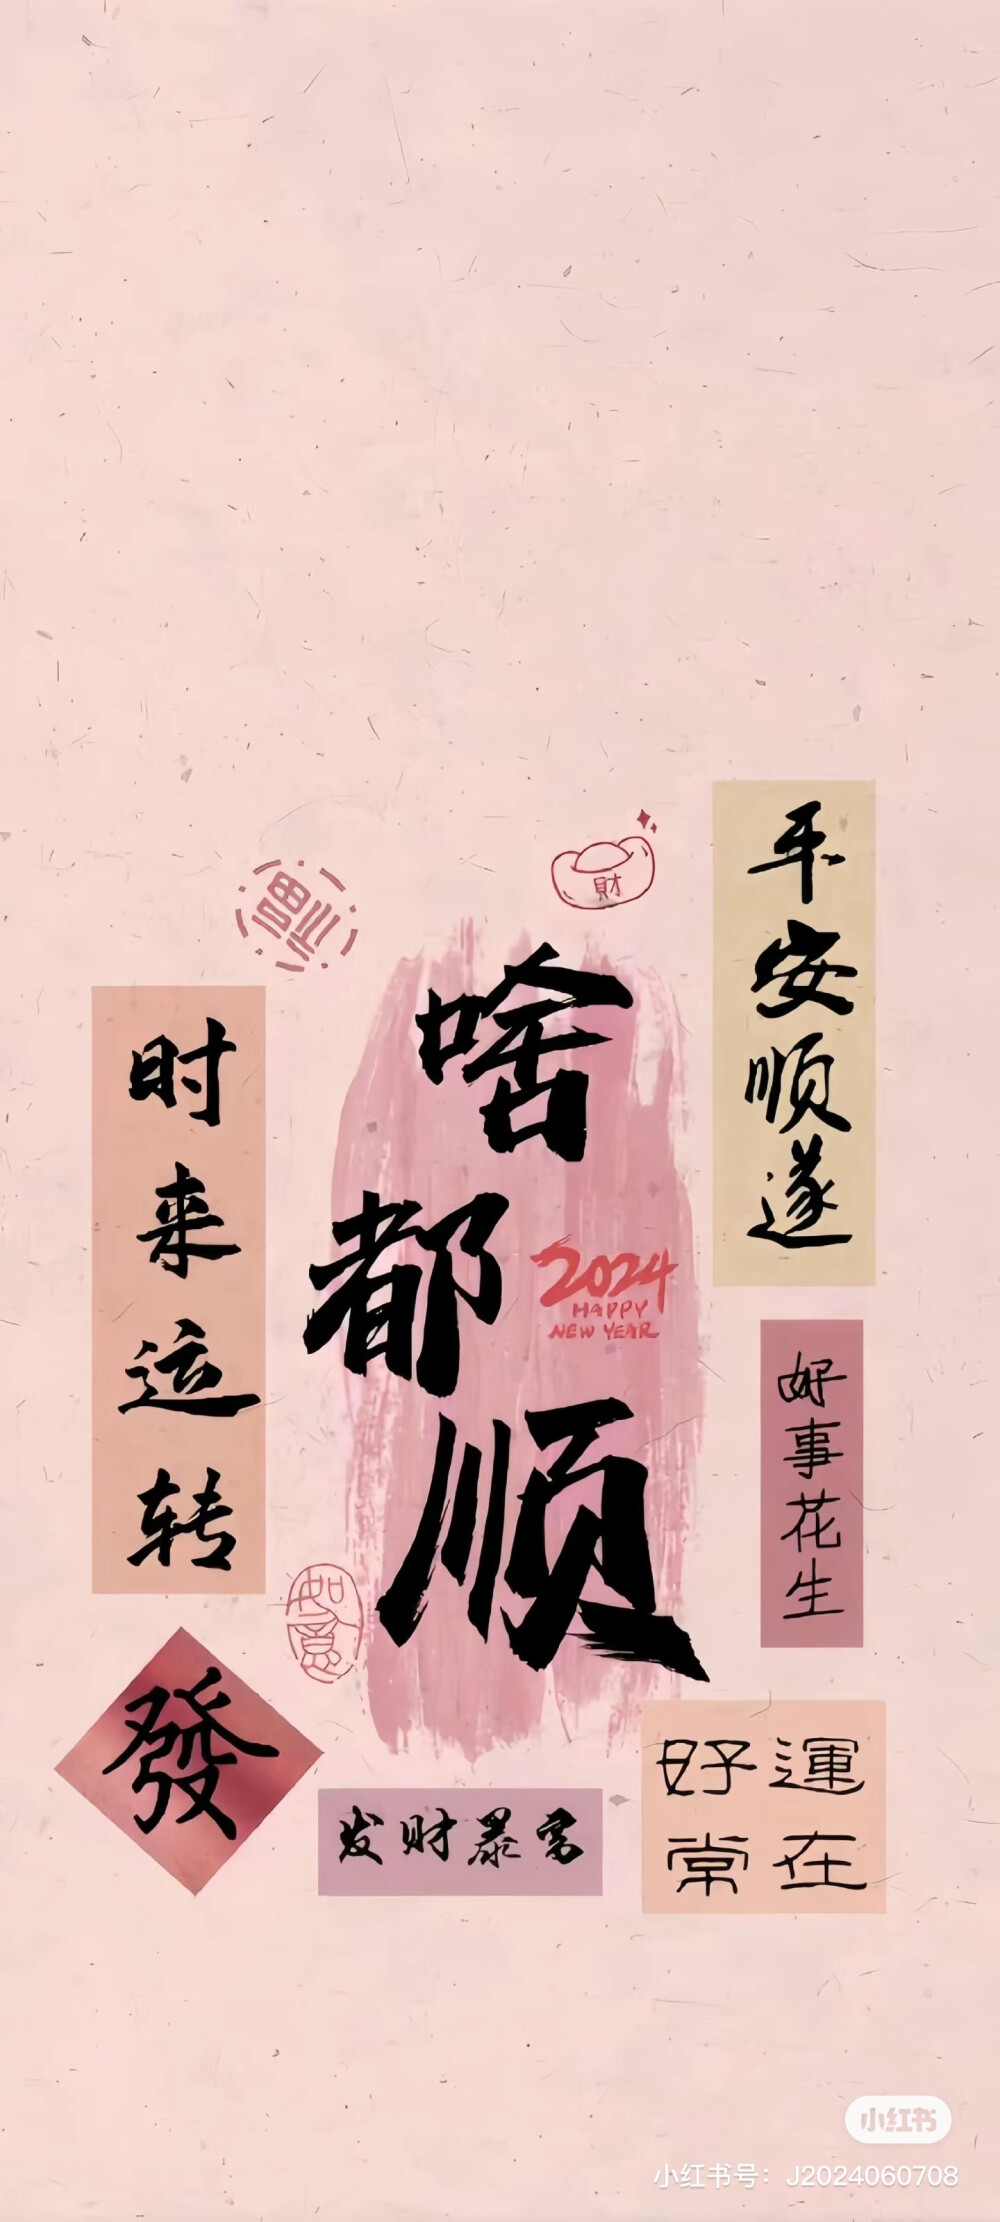 平安顺遂
財
福
啥都顺
时来运转
2024
HAPPY
NEW YEAR
好事花生
如意
發
好運
常在
发财暴富
小红书
小红书号：J2024060708